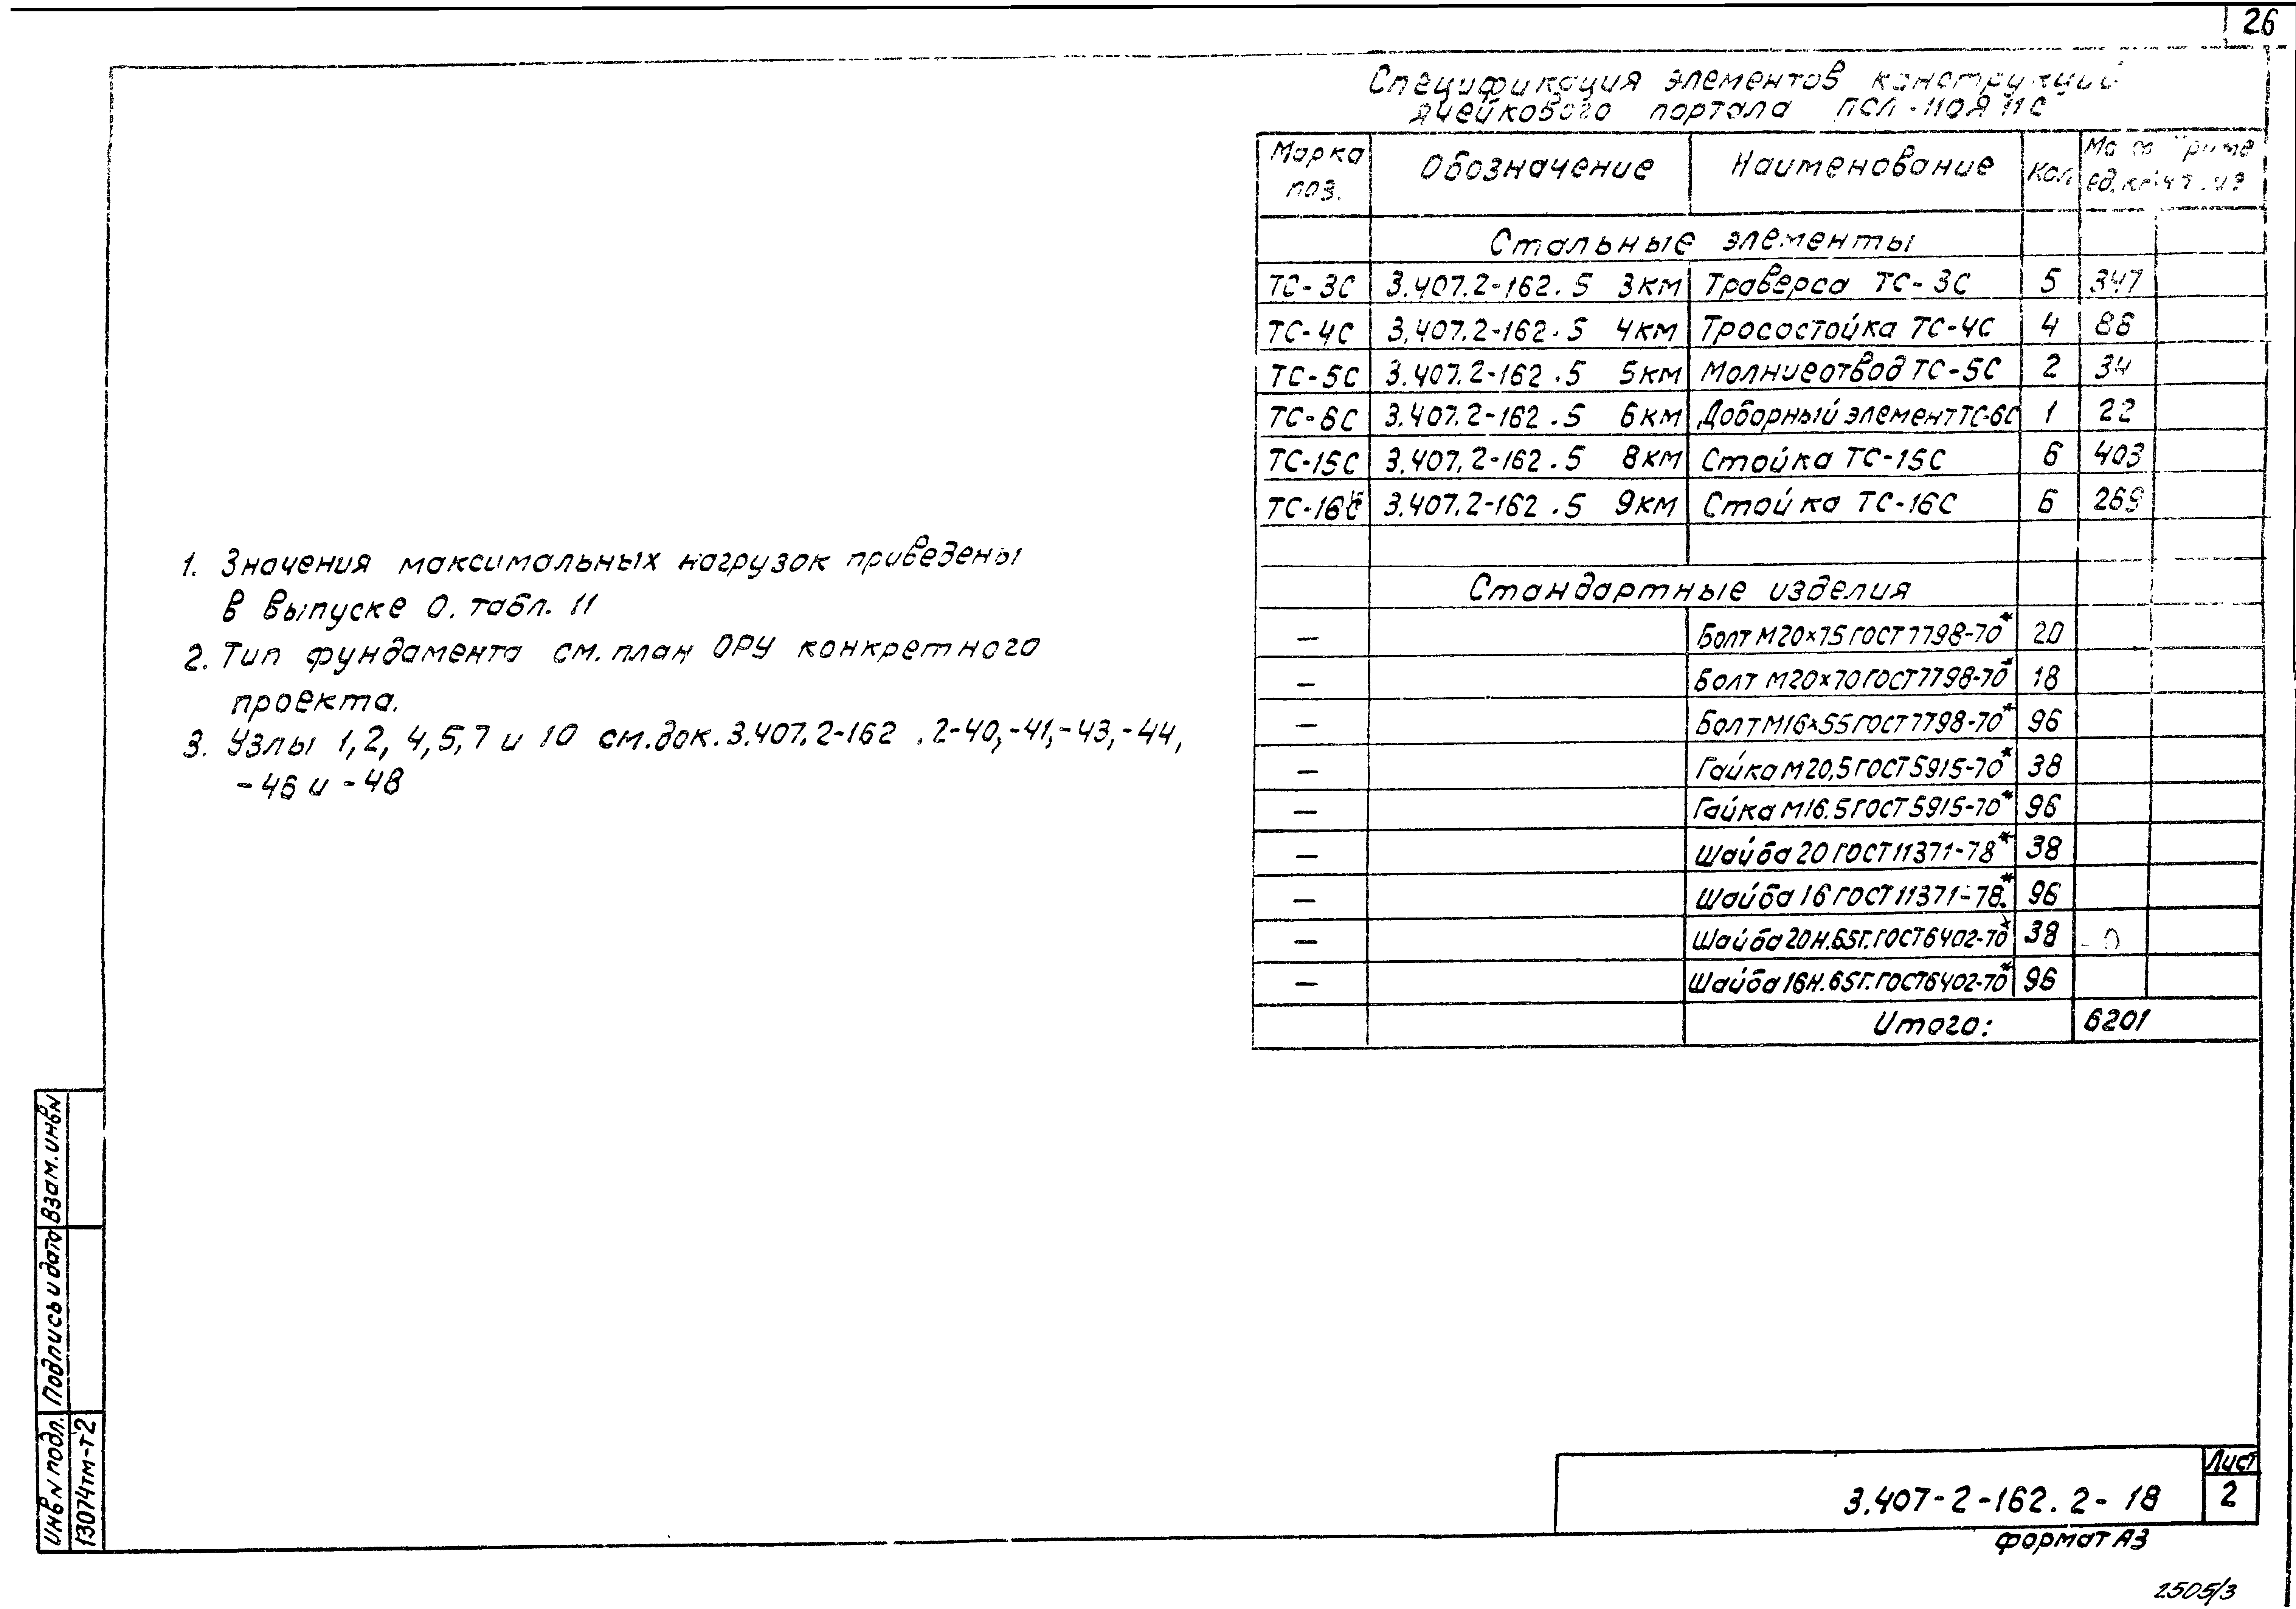 26
Спецификация элементов конструкций
ячейкового портала ПСЛ-110Я11С
Марка поз. Обозначение Наименование Кол. ед.кг
Стальные элементы
ТС-3С 3.407.2-162.5 3км Траверса ТС-3С 5 347
ТС-4С 3.407.2-162.5 4км Тросостойка ТС-4С 4 86
ТС-5С 3.407.2-162.5 5км Молниеотвод ТС-5С 2 34
ТС-6С 3.407.2-162.5 6км Доборный элемент ТС-6С 1 22
ТС-15С 3.407.2-162.5 8км Стойка ТС-15С 6 403
ТС-16С 3.407.2-162.5 9км Стойка ТС-16С 6 269
Стандартные изделия
— Болт М20×75 ГОСТ 7798-70* 20
— Болт М20×70 ГОСТ 7798-70* 18
— Болт М16×55 ГОСТ 7798-70* 96
— Гайка М20,5 ГОСТ 5915-70* 38
— Гайка М16.5 ГОСТ 5915-70* 96
— Шайба 20 ГОСТ 11371-78* 38
— Шайба 16 ГОСТ 11371-78* 96
— Шайба 20Н.65Г.ГОСТ 6402-70* 38
— Шайба 16Н.65Г.ГОСТ 6402-70* 96
Итого: 6201
1. Значения максимальных нагрузок приведены
в выпуске 0. табл. 11
2. Тип фундамента см. план ОРУ конкретного
проекта.
3. Узлы 1, 2, 4, 5, 7 и 10 см. док. 3.407.2-162 .2-40, -41, -43, -44,
-46 и -48
Взам. инв N
Подпись и дата
Инв N подл.
13074тм-т2
3.407-2-162.2-18
Лист
2
формат А3
2505/3